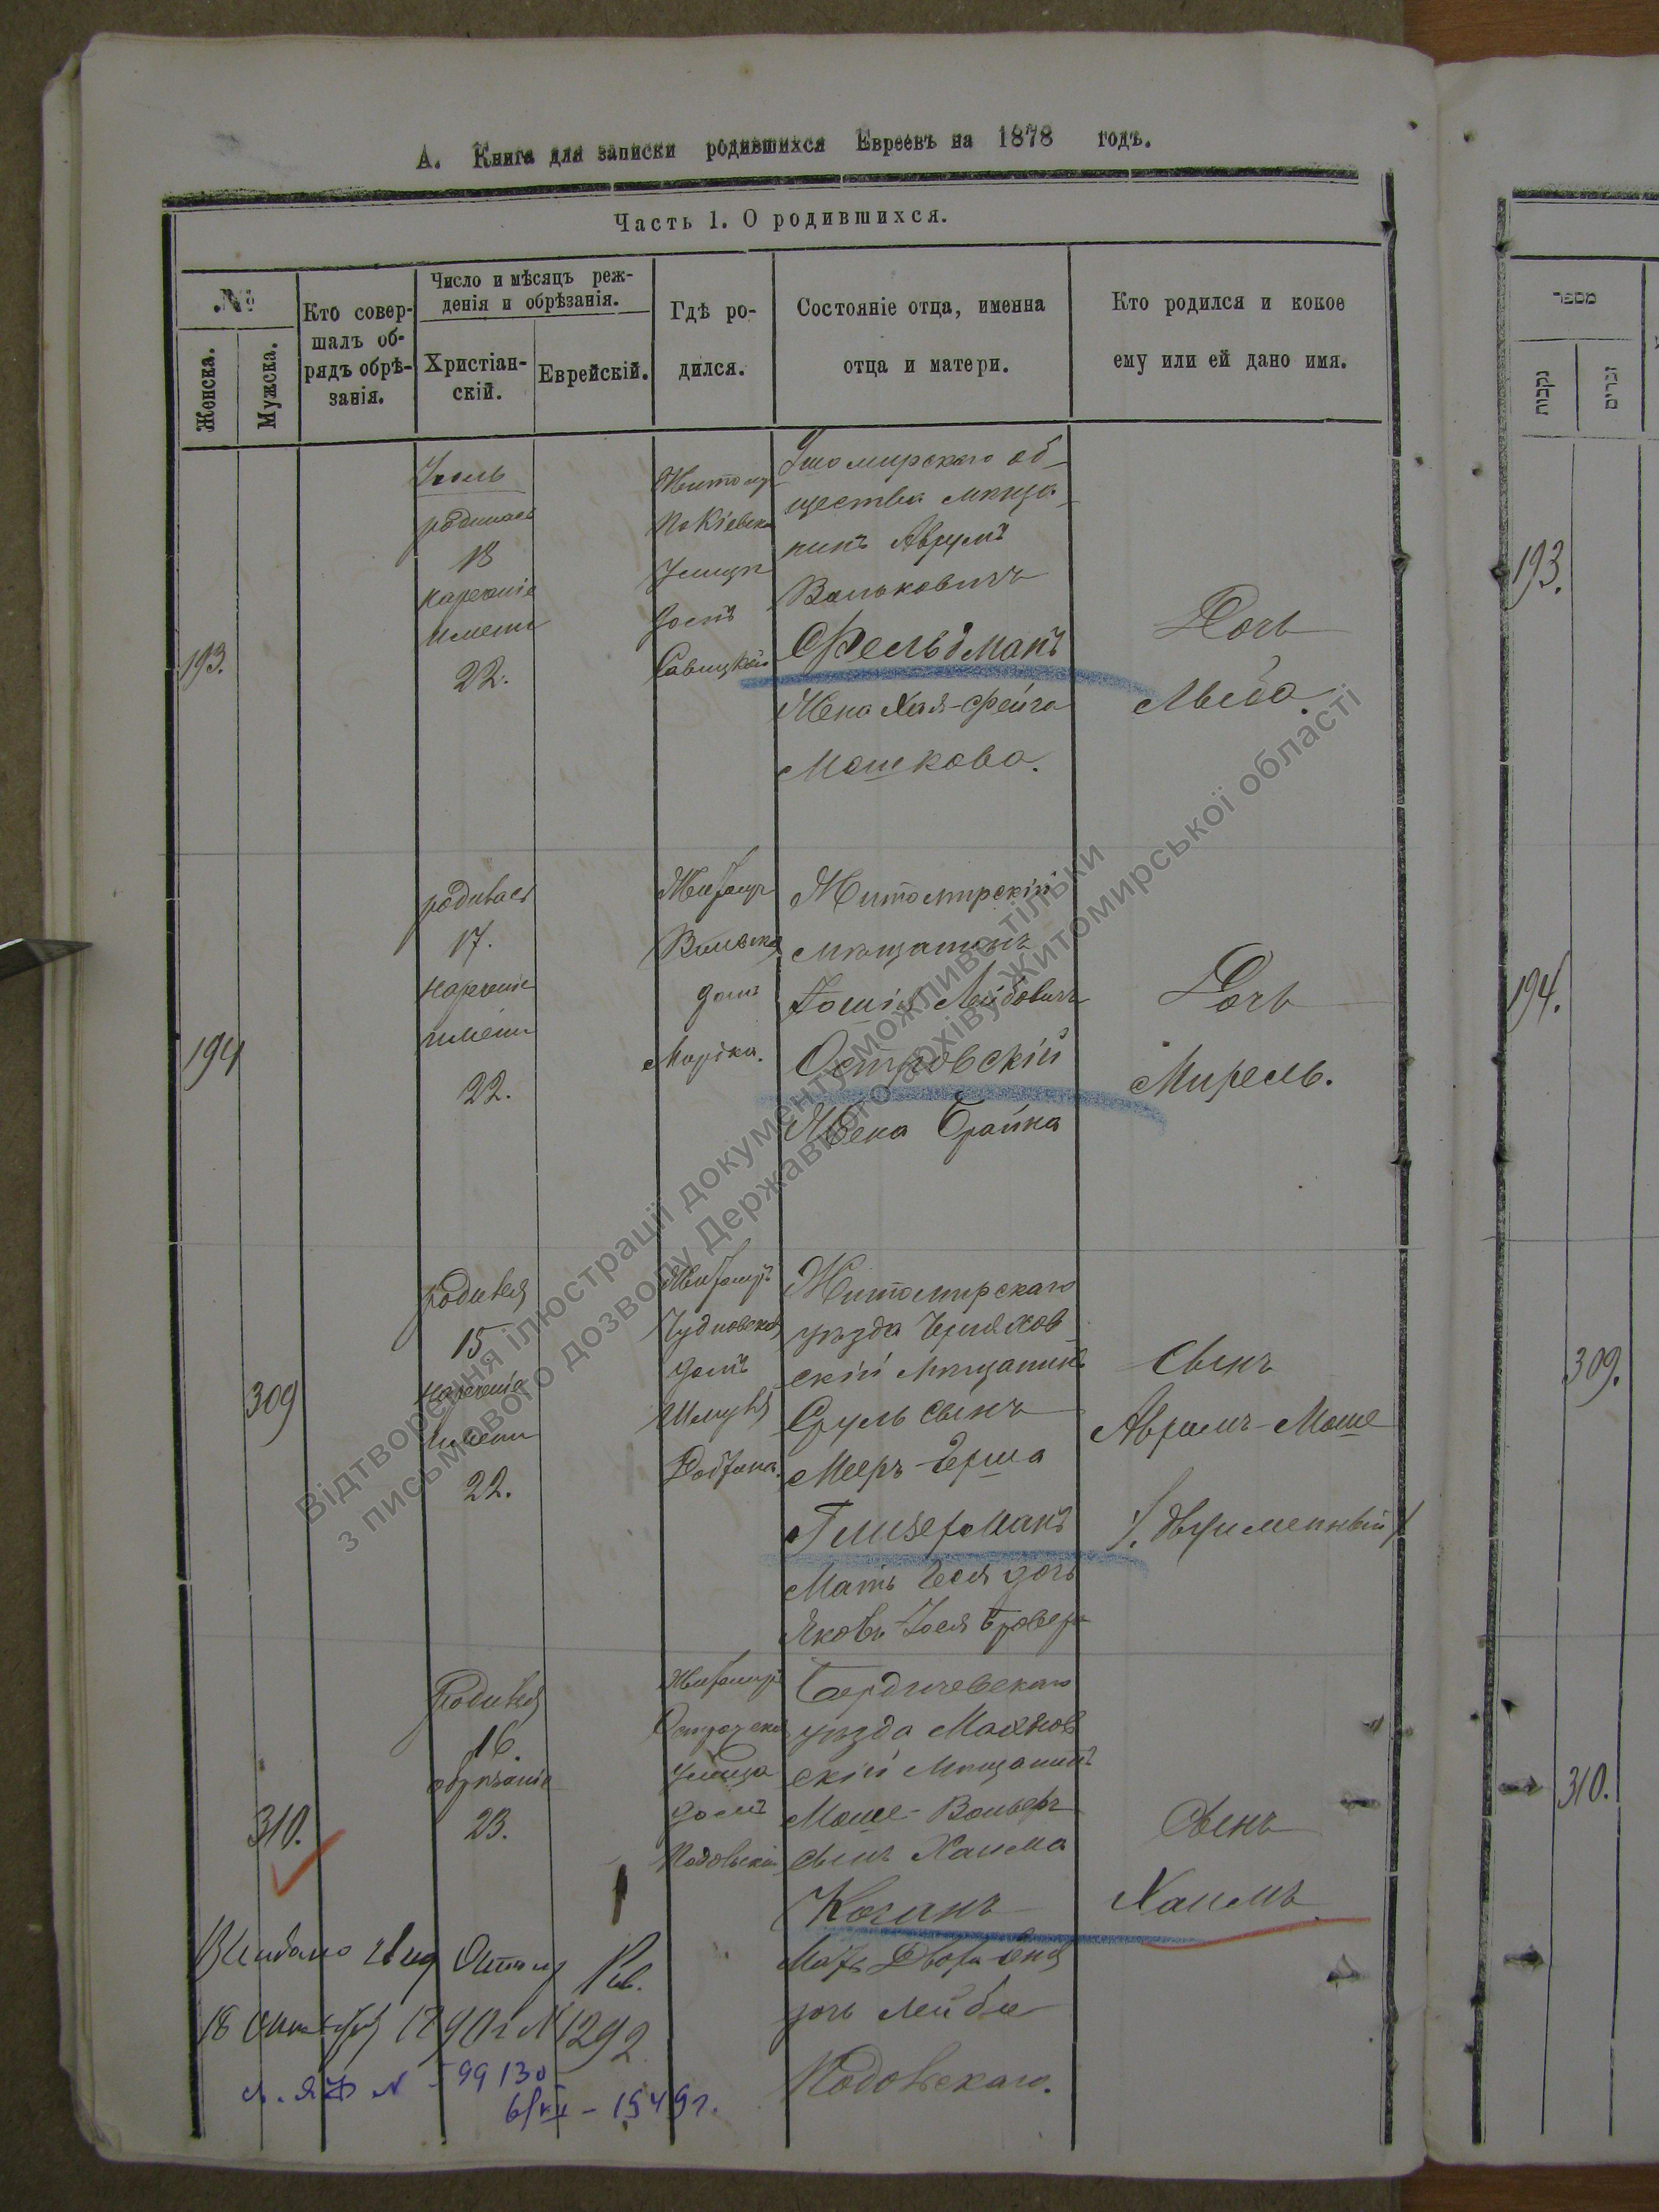 А. Книга для записки родившихся Евреевъ на 1878 годъ.
Часть 1. О родившихся.
№
Женска.
Мужска.
Кто совер-
шалъ об-
рядъ обрѣ-
занія.
Число и мѣсяцъ реж-
денія и обрѣзанія.
Христіан-
скій.
Еврейскій.
Гдѣ ро-
дился.
Состояніе отца, именна
отца и матери.
Кто родился и кокое
ему или ей дано имя.
193.
Іюль
родилась
18
нареченіе
имени
22.
Житомир
по Кіевской
улицѣ
домъ
Савицкой
Ушомирскаго об-
щества мѣща-
нинъ Аврумъ
Вольковичъ
Фельдманъ
Жена Хая-Фейга
Мошкова.
Дочь
194
родилась
17.
нареченіе
имени
22.
Житомир
Вильская
домъ
Житомирскій
мѣщанинъ
Лейбовичъ
Островскій
Жена Брайна
Дочь
Мирель.
309
родился
15
нареченіе
имени
22.
Житомиръ
Чудновская
домъ
Шмуля
Житомирскаго
уѣзда Черняхов-
скій мѣщанинъ
Сруль сынъ
Мееръ-Герша
Глизерманъ
Мать Песя дочь
Сынъ
Аврамъ-Моше
310.
родился
16.
обрѣзаніе
23.
Житомиръ
улица
домъ
Подольскій
Бердичевскаго
уѣзда Махнов
скій Мѣщанинъ
Моше-Вольфъ
сынъ Хаима
Коганъ
Мать Двора
дочь Лейбы
Подольскаго.
Сынъ
Хаимъ
18 1890 г № 1292
99130
6/XI - 1949г.
מספר
נקבות
זכרים
193.
194.
309.
310.
Відтворення ілюстрації документу можливо тільки
з письмового дозволу Державного архіву Житомирської області